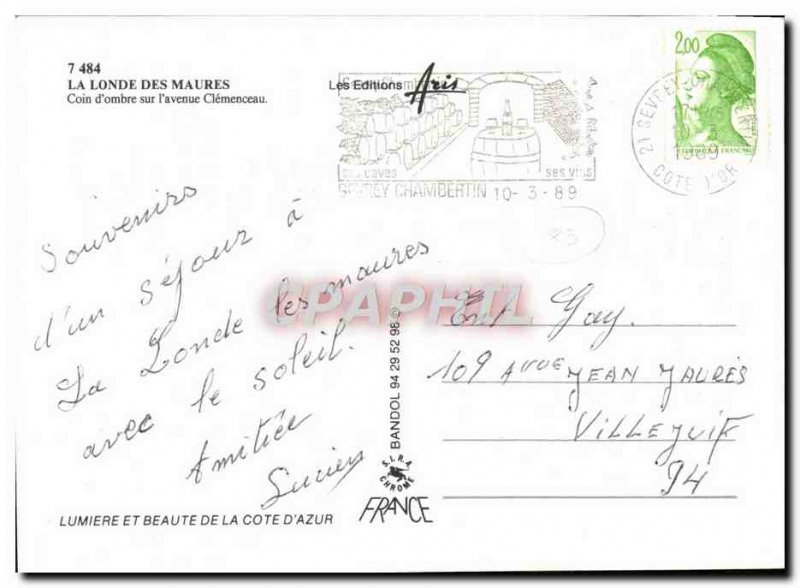 7 484
LA LONDE DES MAURES
Coin d'ombre sur l'avenue Clémenceau.
Les Editions Aris
ses caves ses vins
GEVREY CHAMBERTIN 10-3-89
2,00
21 GEVREY
1989
COTE D'OR
Souvenirs
d'un séjour à
La Londe les maures
avec le soleil.
Amitiée
Lucien
CPAPHIL
BANDOL 94 29 52 98 ©
S.I.R.A.
CHROME
FRANCE
93
Ent Gay.
109 Avvue JEAN JAURÈS
VILLEJUIF
94
LUMIERE ET BEAUTE DE LA COTE D'AZUR